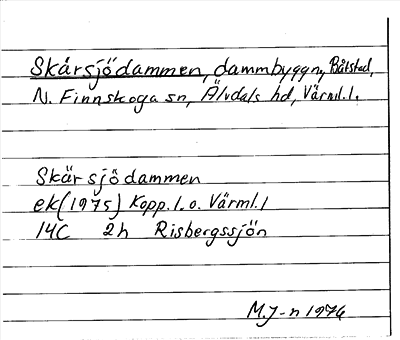 Skärsjödammen, dammbyggn, Båtstad,
N. Finnskoga sn, Älvdals hd, Värml. l.
Skärsjödammen
ek (1975) Kopp. l. o. Värml. l
14C 2h Risbergssjön
M.J-n 1976